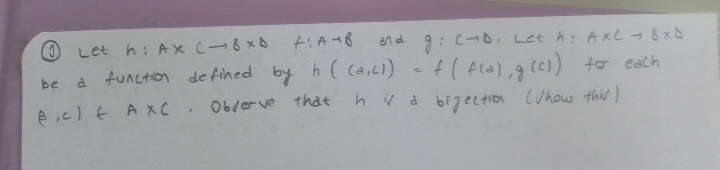 ① Let h: A x C → B x D f: A → B and g: C → D. Let h: A x C → B x D
be a function defined by h((a,c)) = f(f(a), g(c)) for each
(a,c) ∈ A x C. Observe that h is a bijection (show this)